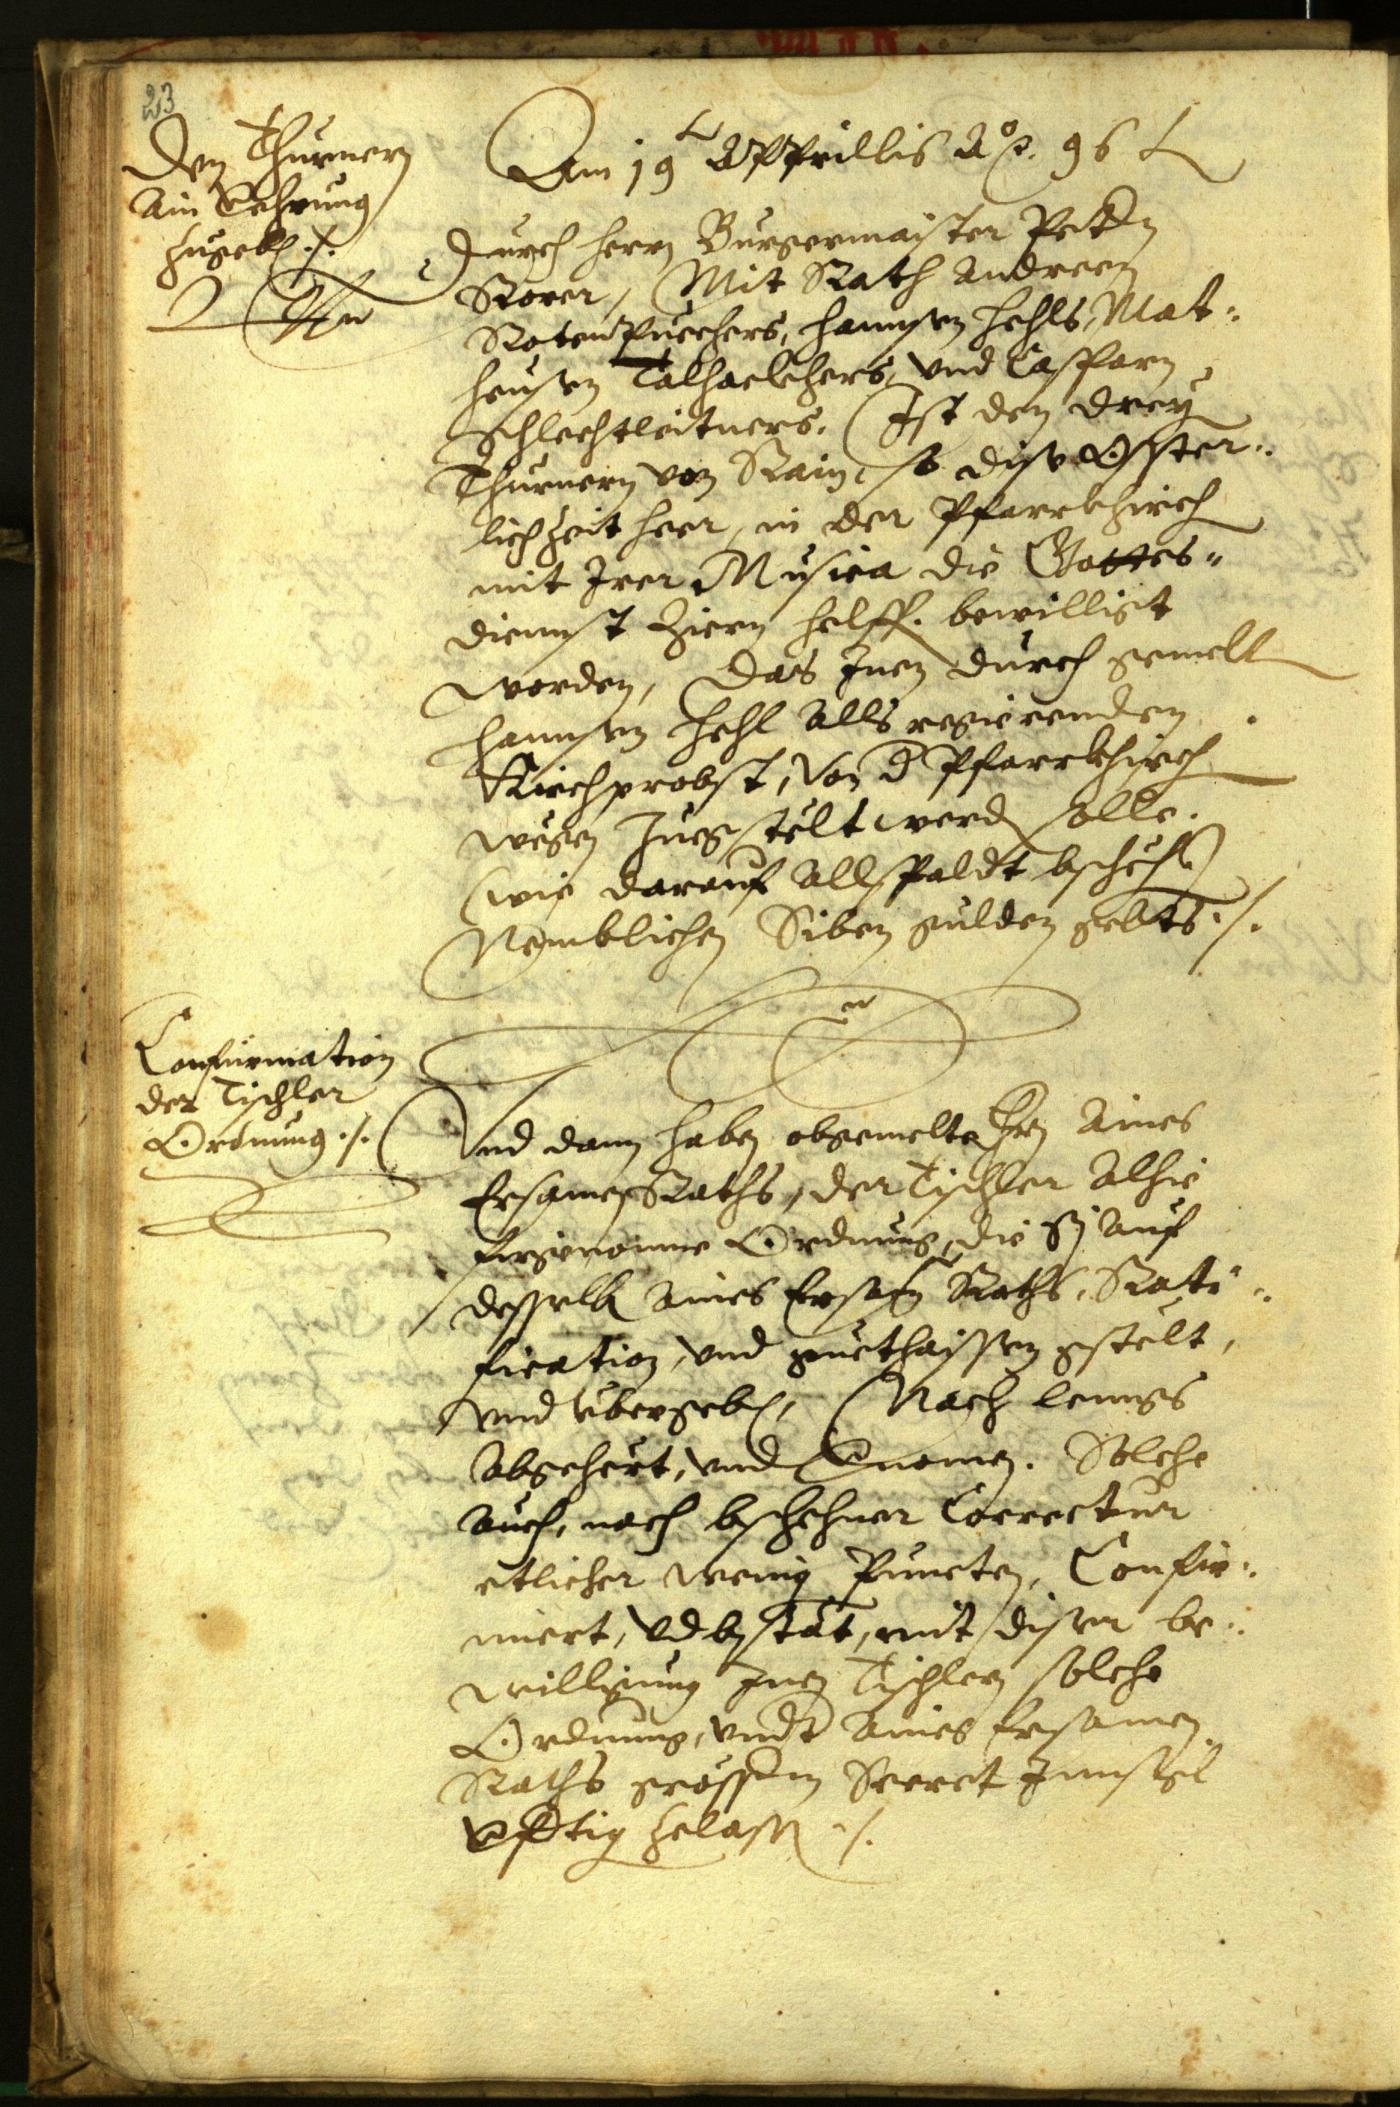 23
Den Thurnern
Ain Verehrung
zugeben ./.
Am 19 Apprillis Ao. 96
Durch herrn Burgermaister Petern
Rorer, Mit Rath Andreen
Rotenpuechers, Hannsen Hehls, Mat-:
heusen Talhackhers, vnd Casparn
Schlechtleitners. Ist den drey
Thurnern von Rain, so dise Osster-:
lich Zeit heer, in der Pfarrkhirch
mit Irer Musica die Gottes-
dienst Ziern helffen. bewilligt
worden, Das Inen durch gemelt
Hannsen Hehl Alls regierenden
Kirchprobst, Von der Pfarrkhirch
wegen Zuegstelt werden solle.
(wie darauf Allspaldt bschehen)
Nemblichen Siben gulden gelts ./.
Confirmation
der Tischler
Ordnung ./.
Und dann haben obgemelte Hern Aines
Ersamen Raths, der Tischler Alhie
firgenomne Ordnung, die Sy Auf
desselben Aines Ersamen Raths, Rati-:
fication, vnd guethaissen gstelt,
vnd ubergeben, Nach lengs
Abgehört, vnd vernomen. Solche
Auch, nach bschehner Correctur
etlicher wenig Puncten, Confir-:
miert, vnd bstät, mit diser be-:
willigung Inen Tischlern solche
Ordnung, vndter Aines Ersamen
Raths grösserm Secret Innsigl
verfertig Zelassen ./.